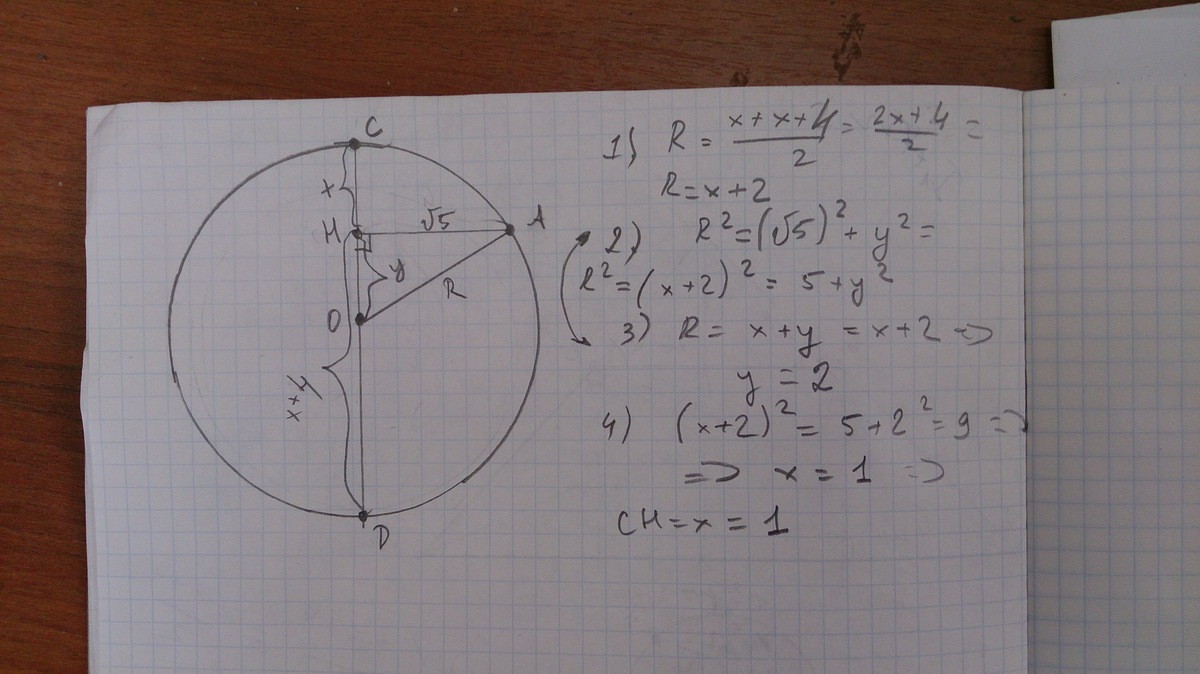 C
x
H
√5
A
y
R
O
x+4
D
1) R = \frac{x+x+4}{2} = \frac{2x+4}{2} =
R=x+2
2) R²=(√5)²+y²=
R²=(x+2)²= 5+y²
3) R= x+y =x+2 =>
y =2
4) (x+2)²= 5+2²=9 =>
=> x = 1 =>
CH=x=1